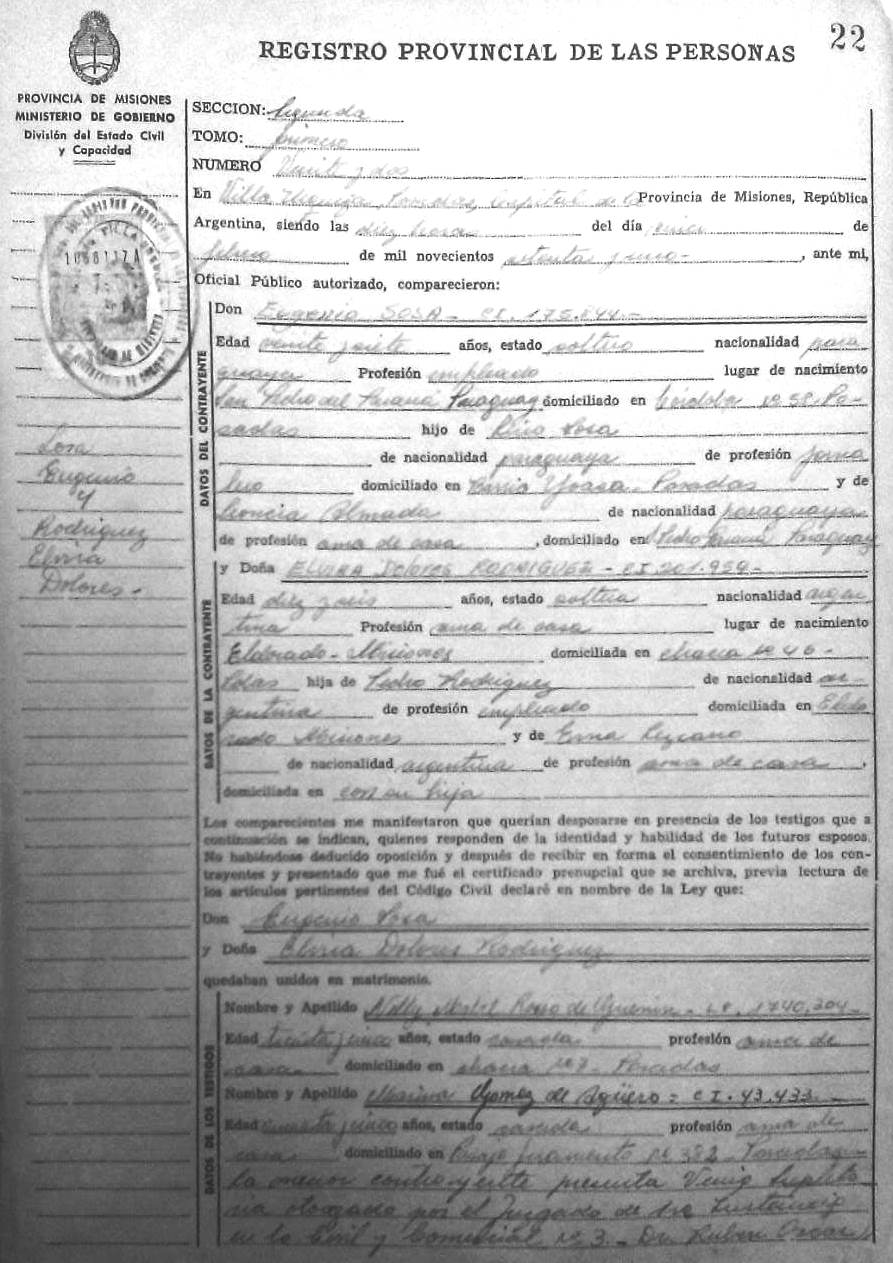 22
REGISTRO PROVINCIAL DE LAS PERSONAS
PROVINCIA DE MISIONES
MINISTERIO DE GOBIERNO
División del Estado Civil
y Capacidad
SECCION: Segunda
TOMO: primero
NUMERO Veinte y dos
En Villa Urquiza, Posadas, capital de la Provincia de Misiones, República
Argentina, siendo las diez horas del día cinco de
febrero de mil novecientos setenta y uno- , ante mi,
Oficial Público autorizado, comparecieron:
DATOS DEL CONTRAYENTE
Don Eugenio SOSA - CI. 175.644.-
Edad veinte y siete años, estado soltero nacionalidad para
guaya Profesión empleado lugar de nacimiento
San Pedro del Paraná Paraguay domiciliado en Córdoba Nº 58. Po-
sadas hijo de Sosa
de nacionalidad paraguaya de profesión jorna
lero domiciliado en Barrio Posadas y de
Leoncia Almada de nacionalidad paraguaya
de profesión ama de casa , domiciliado en S. Pedro Paraná Paraguay
Sosa
Eugenio
y
Rodriguez
Elvira
Dolores.-
DATOS DE LA CONTRAYENTE
y Doña ELVIRA DOLORES RODRIGUEZ - CI 201.959.-
Edad diez y seis años, estado soltera nacionalidad argen
tina Profesión ama de casa lugar de nacimiento
Eldorado - Misiones domiciliada en chacra Nº 46 -
Pdas hija de Pedro Rodriguez de nacionalidad ar
gentina de profesión empleado domiciliada en Eldo
rado Misiones y de Erna Lezcano
de nacionalidad argentina de profesión ama de casa ,
domiciliada en con su hija
Los comparecientes me manifestaron que querían desposarse en presencia de los testigos que a
continuación se indican, quienes responden de la identidad y habilidad de los futuros esposos.
No habiéndose deducido oposición y después de recibir en forma el consentimiento de los con-
trayentes y presentado que me fué el certificado prenupcial que se archiva, previa lectura de
los artículos pertinentes del Código Civil declaré en nombre de la Ley que:
Don Eugenio Sosa
y Doña Elvira Dolores Rodriguez
quedaban unidos en matrimonio.
DATOS DE LOS TESTIGOS
Nombre y Apellido Nelly Mabel de 1740,304-
Edad treinta y cinco años, estado casada profesión ama de
casa domiciliado en chacra Nº 7 - Posadas
Nombre y Apellido Gomez de Agüero = CI. 43.433
Edad y cinco años, estado casada profesión ama de
casa domiciliado en Pasaje Juramento Nº 382 - Posadas
La menor contrayente presenta Venia Supleto
ria otorgada por el Juzgado de 1ra Instancia
en lo Civil y Comercial Nº 3 - Dr. Ruben Oscar